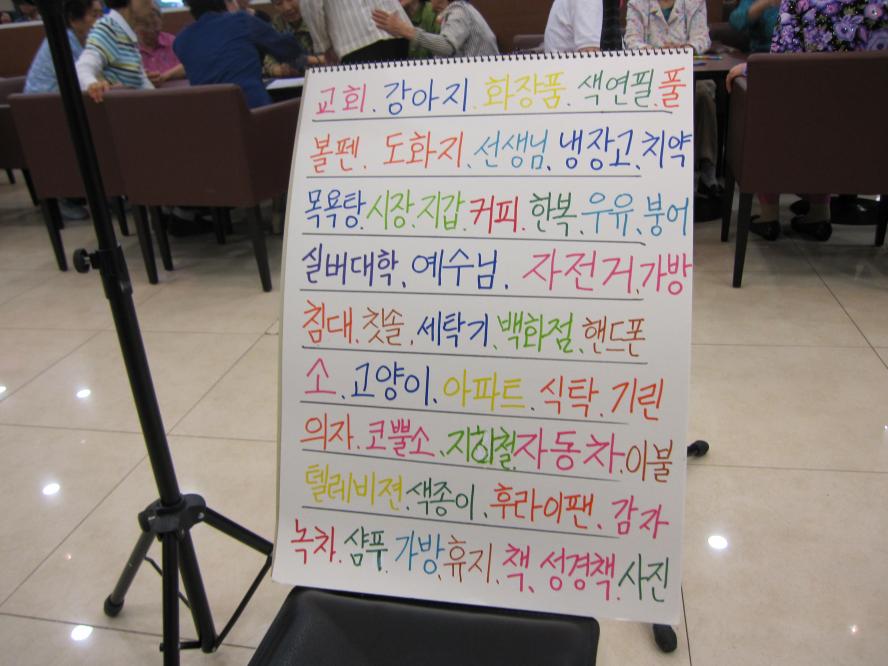 교회. 강아지. 화장품. 색연필. 풀
볼펜. 도화지. 선생님. 냉장고. 치약
목욕탕. 시장. 지갑. 커피. 한복. 우유. 붕어
실버대학. 예수님. 자전거. 가방
침대. 칫솔. 세탁기. 백화점. 핸드폰
소. 고양이. 아파트. 식탁. 기린
의자. 코뿔소. 지하철. 자동차. 이불
텔레비젼. 색종이. 후라이팬. 감자
녹차. 샴푸. 가방. 휴지. 책. 성경책. 사진